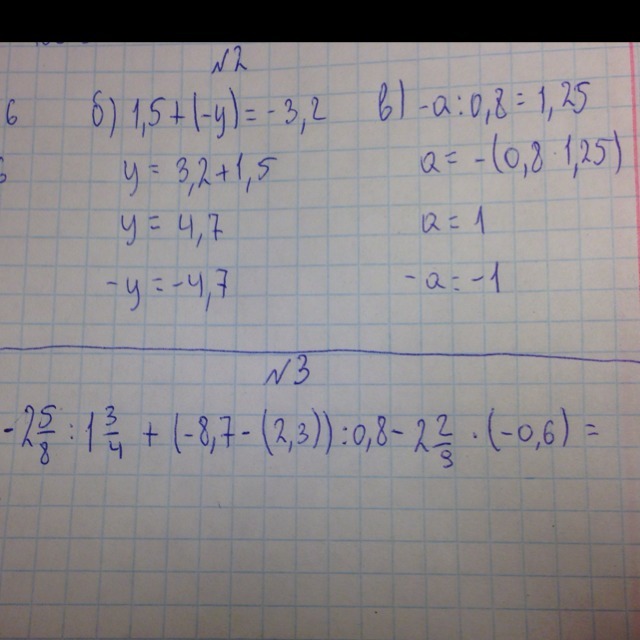 №2
6 б) 1,5+(-y)=-3,2 в) -a:0,8=1,25
y=3,2+1,5 a=-(0,8·1,25)
y=4,7 a=1
-y=-4,7 -a=-1
№3
-2 5/8 : 1 3/4 + (-8,7-(2,3)):0,8-2 2/3 · (-0,6) =